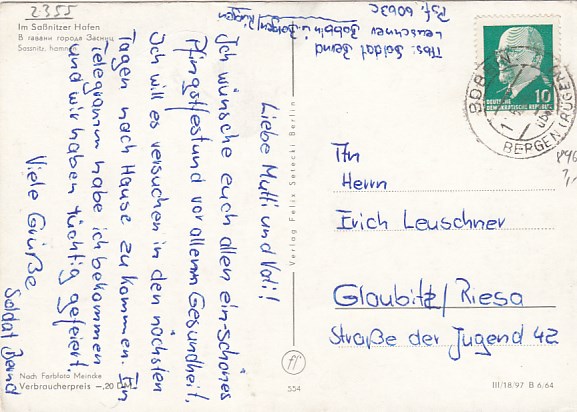 2355
Im Saßnitzer Hafen
В гавани города Засниц
Sassnitz, hamnen
Abs: Soldat Bernd
Leuschner
Bobbin ü. Bergen/
Rügen
Psf. 6063c
Liebe Mutti und Vati!
Ich wünsche euch allen ein schönes
Pfingstfest und vor allem Gesundheit.
Ich will es versuchen in den nächsten
Tagen nach Hause zu kommen. Ein
Telegramm habe ich bekommen
und wir haben tüchtig gefeiert.
Viele Grüße
Soldat Bernd
Nach Farbfoto Meincke
Verbraucherpreis –,20 DM
Verlag Felix Setecki Berlin
ff
554
10
DEUTSCHE
DEMOKRATISCHE REPUBLIK
BOBBIN
über
BERGEN (RÜGEN)
An
Herrn
Erich Leuschner
Glaubitz/Riesa
Straße der Jugend 42
III/18/97 B 6/64